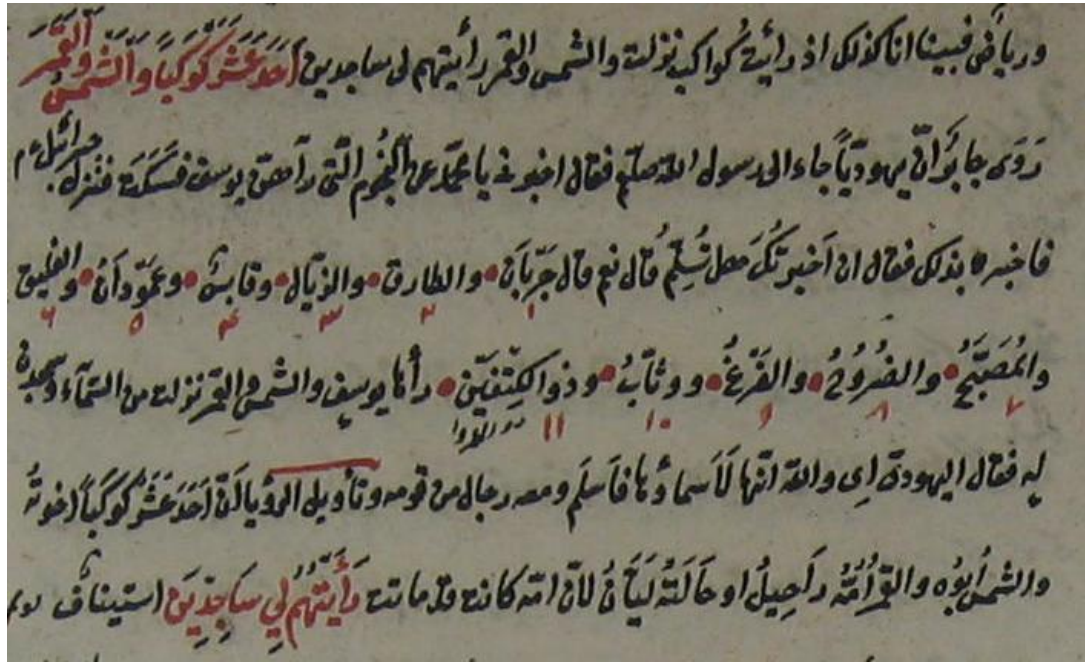 ورياض فبينا انا كذلك اذ رأيت كواكب نزلت والشمس والقمر رأيتهم لى ساجدين اَحَدَ عَشَرَ كَوْكَبًا وَالشَّمْسَ وَالْقَمَرَ
رَوَى جابرٌ انّ يهوديّاً جاء الى رسول الله صلعم فقال اخبرنى يا محمّد عن النجوم التى رآهنّ يوسف فسكت فنزل جبرائيل ءم
فاخبره بذلك فقال ان اَخبرتُكَ هل تُسْلِمُ قال نعم قال جَرَّبَانُ والطارق والذيّال وقابس وعَمَوْدَانُ والفليق
١ ٢ ٣ ۴ ٥ ٦
والمُصَبِّحُ والضُرُوحُ والفَرْغُ ووثّابُ وذو الكِتفَيْنِ رأها يوسف والشمس والقمر نزلت من السّمآء وسجدن
٧ ٨ ٩ ١٠ ١١
له فقال اليهودىّ اِى والله انّها لَاَسماؤها فاَسلَم ومعه رجال من قومه وتأويل الرؤيا لانّ اَحَدَ عَشَرَ كَوْكَبًا اخوتُهُ
والشمسُ اَبُوُه والقمرُ اُمُّهُ رَاحِيلُ او خَالَتُهُ لَيَّانُ لانّ امّه كانت قد ماتت رَأَيْتُهُمْ لِي سَاجِدِينَ استيناف